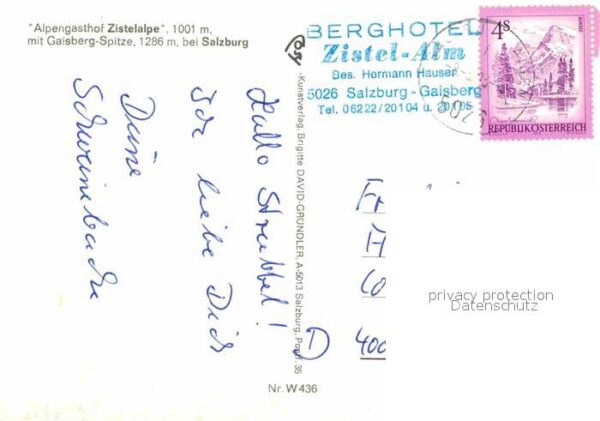 "Alpengasthof Zistelalpe", 1001 m,
mit Gaisberg-Spitze, 1286 m, bei Salzburg
BERGHOTEL
Zistel-Alm
Bes. Hermann Hauser
5026 Salzburg - Gaisberg
Tel. 06222/20104 u. 20105
4S
REPUBLIK ÖSTERREICH
Kunstverlag, Brigitte DAVID-GRÜNDLER, A-5013 Salzburg, Postf. 35
Hallo Strubbel!
Ich liebe Dich
Deine
Schweinebacke
D
400
privacy protection
Datenschutz
Nr. W 436